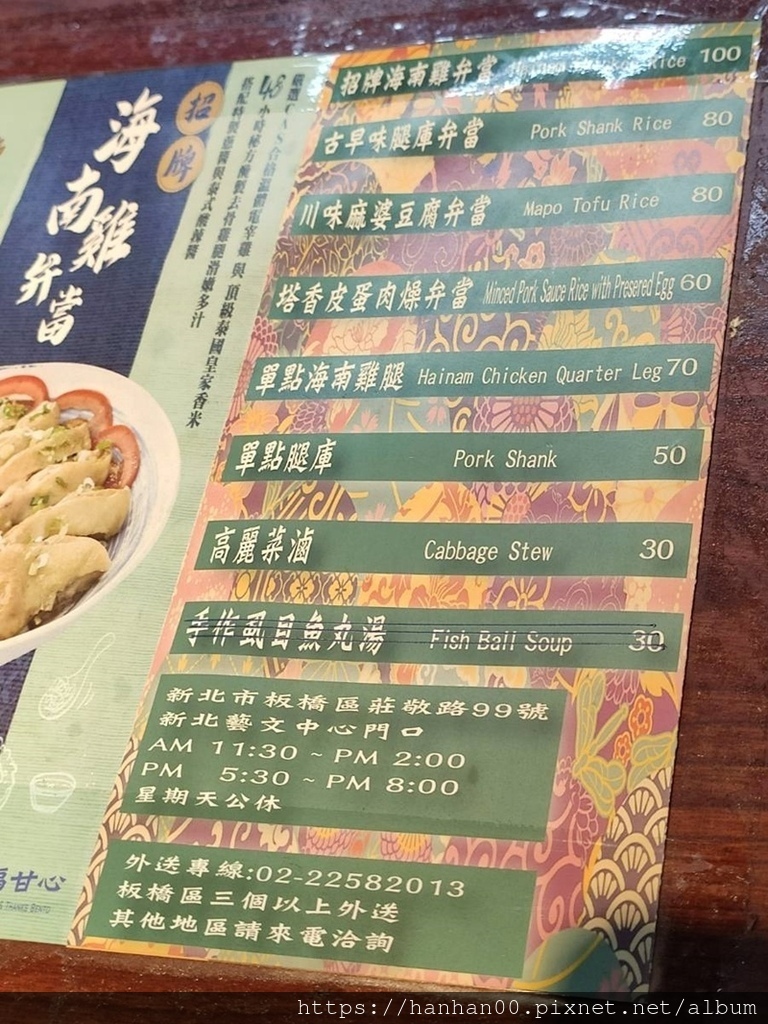 招牌
海南雞弁當
嚴選CAS合格溫體電宰雞與頂級泰國皇家香米
48小時秘方醃製去骨雞腿滑嫩多汁
招牌海南雞弁當 Rice 100
古早味腿庫弁當 Pork Shank Rice 80
川味麻婆豆腐弁當 Mapo Tofu Rice 80
塔香皮蛋肉燥弁當 Minced Pork Sauce Rice with Presered Egg 60
單點海南雞腿 Hainam Chicken Quarter Leg 70
單點腿庫 Pork Shank 50
高麗菜滷 Cabbage Stew 30
手作虱目魚丸湯 Fish Ball Soup 30
新北市板橋區莊敬路99號
新北藝文中心門口
AM 11:30 ~ PM 2:00
PM 5:30 ~ PM 8:00
星期天公休
外送專線:02-22582013
板橋區三個以上外送
其他地區請來電洽詢
甘心
THANKS BENTO
https://hanhan00.pixnet.net/album